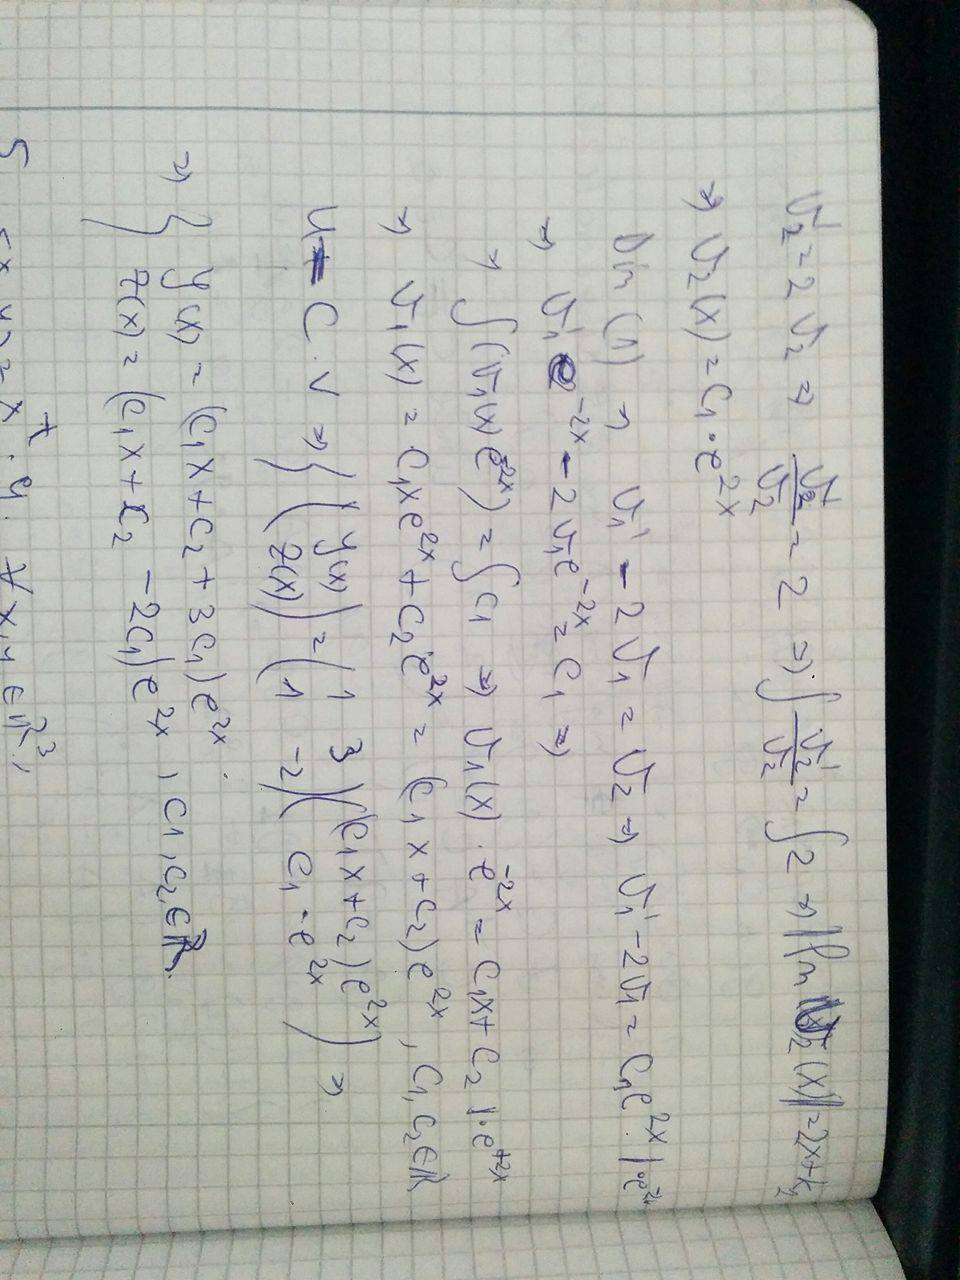 v₂' = 2 v₂ ⇒ v₂'/v₂ = 2 ⇒ ∫ v₂'/v₂ = ∫ 2 ⇒ |ln v₂(x)| = 2x + k₂
⇒ v₂(x) = C₁ · e^{2x}
Din (1) ⇒ v₁' - 2v₁ = v₂ ⇒ v₁' - 2v₁ = C₁e^{2x} | · e^{-2x}
⇒ v₁' e^{-2x} - 2v₁e^{-2x} = C₁ ⇒
⇒ ∫ (v₁(x) e^{-2x})' = ∫ C₁ ⇒ v₁(x) · e^{-2x} = C₁x + C₂ | · e^{+2x}
⇒ v₁(x) = C₁xe^{2x} + C₂e^{2x} = (C₁x + C₂)e^{2x}, C₁, C₂ ∈ ℝ
U = C · V ⇒ { (y(x) z(x)) = (1 3 1 -2) ((C₁x + C₂)e^{2x} C₁ · e^{2x}) ⇒
⇒ { y(x) = (C₁x + C₂ + 3C₁)e^{2x}
z(x) = (C₁x + C₂ - 2C₁)e^{2x}, C₁, C₂ ∈ ℝ.
x, y ∈ ℝ³,